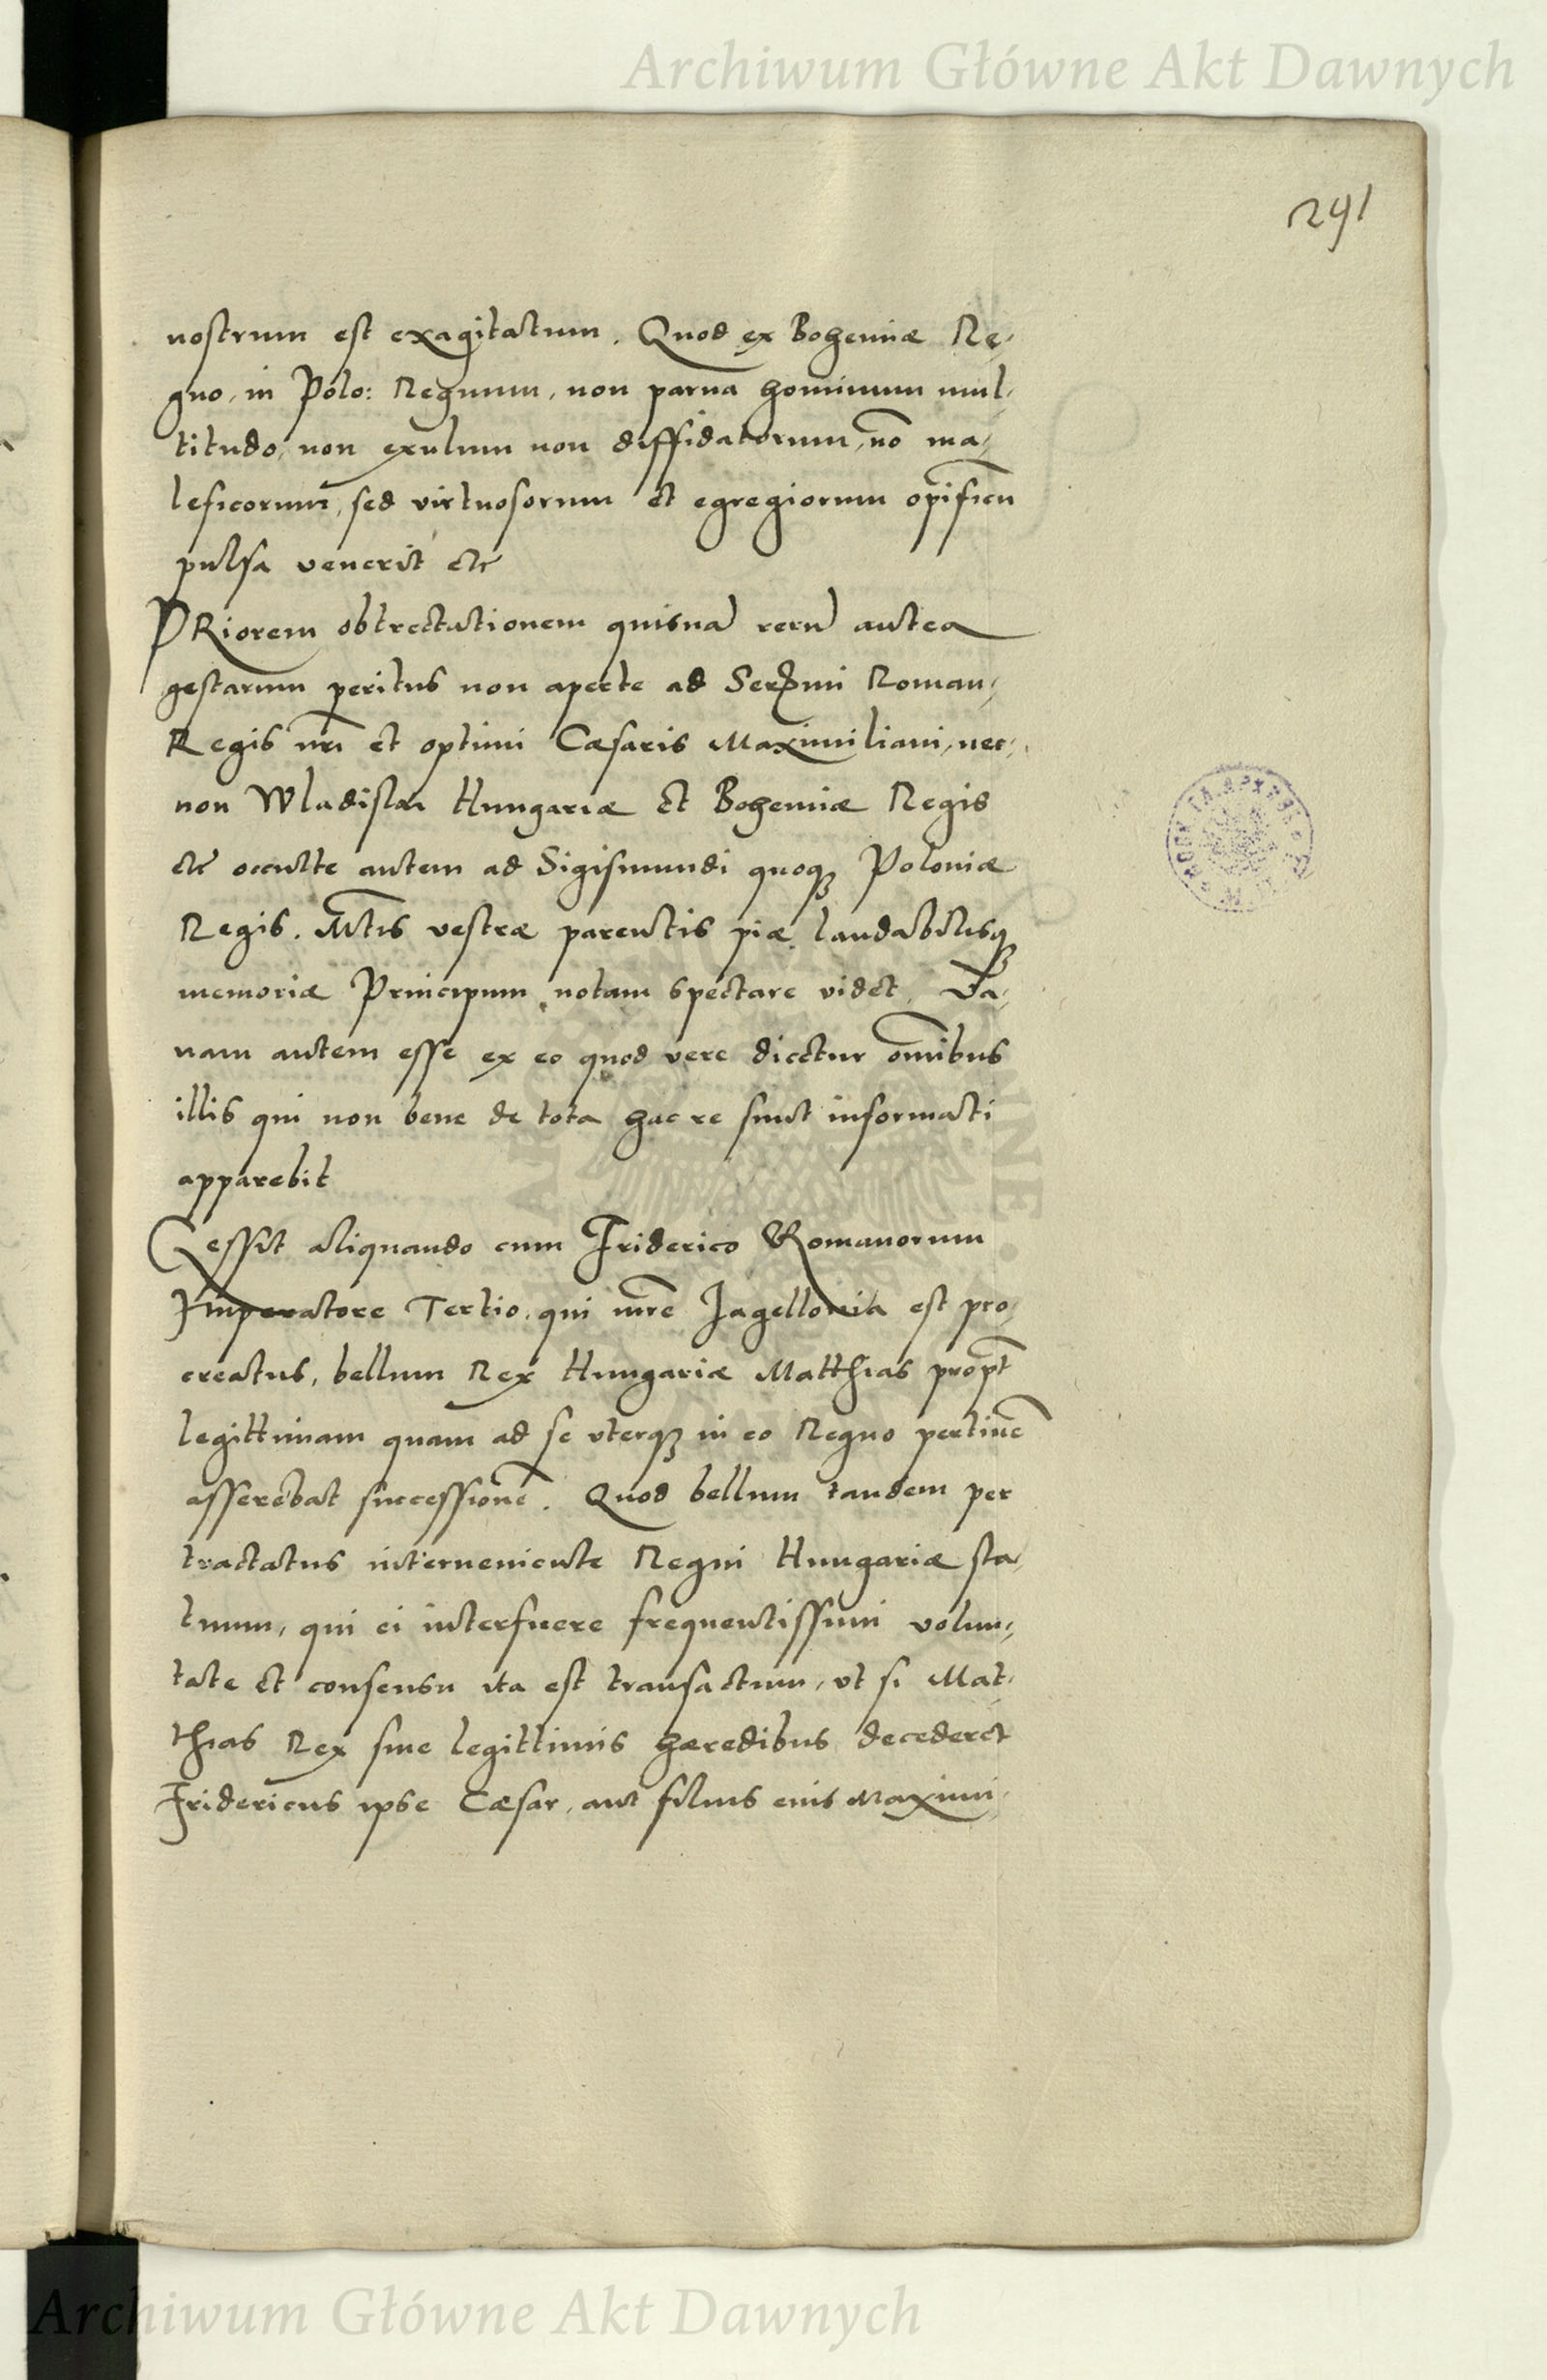 Archiwum Główne Akt Dawnych
291
nostrum est exagitatum. Quod ex Bohemiæ Re-
gno, in Polo: Regnum, non parua hominum mul-
titudo, non exulum non diffidatorum, nō ma-
leficorum, sed virtuosorum et egregiorum opificũ
pulsa venerit etc
PRiorem obtrectationem quisnā rerū antea
gestarum peritus non aperte ad Serᵐⁱ Roman-
Regis nrī et optimi Cæsaris Maximiliani, nec-
non Wladislai Hungariæ et Bohemiæ Regis
etc occulte autem ad Sigismundi quoqꝫ Poloniæ
Regis. Mᵗⁱˢ vestræ parentis piæ laudabilisqꝫ
memoriæ Principum notam spectare videt. Va-
nam autem esse ex eo quod vere dicetur omībus
illis qui non bene de tota hac re sunt informati
apparebit
Gessit aliquando cum Friderico Romanorum
Imperatore Tertio, qui mrē Jagellonia est pro-
creatus, bellum Rex Hungariæ Matthias propt
legittimam quam ad se vterqꝫ in eo Regno pertinē
asserebat successionē. Quod bellum tandem per
tractatus interueniente Regni Hungariæ sta-
tuum, qui ei interfuere frequentissimi volun-
tate et consensu ita est transactum, vt si Mat-
thias Rex sine legittimis hæredibus decederet
Fridericus ipse Cæsar, aut filius eius Maximi-
Archiwum Główne Akt Dawnych